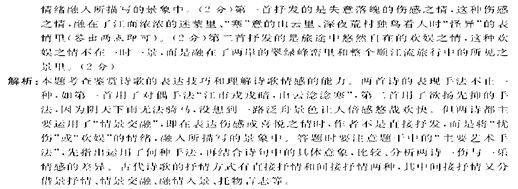 情绪融入所描写的景象中。(2分)第一首抒发的是失意落魄的伤感之情,这种伤感
之情,融在了江面浓浓的迷蒙里、“寒”意的山云里、深夜荒村独鸟看人时“怪异”的表
情里(答出两点即可)。(2分)第二首抒发的是旅途中悠然自在的欢娱之情,这种欢
娱之情不在一时一景,而是融在了两岸的翠绿峰峦里和整个顺江流旅行中的所见之
景里。(2分)
解析:本题考查鉴赏诗歌的表达技巧和理解诗歌情感的能力。两首诗的表现手法不止一
种,如第一首用了对偶手法“江市戎戎暗,山云淰淰寒”,第二首用了欲扬先抑的手
法,因为阴天下雨无法骑马,没想到一路泛舟景色让人倍感悠哉欢快。但两诗都主
要运用了“情景交融”,即在表达伤感或喜悦之情时,作者不是直接抒发,而是将“忧
伤”或“欢娱”的情绪,融入所描写的景象中。答题时要注意题干中的“主要艺术手
法”,先指出运用了何种手法,再结合诗句中的具体意象,比较、分析两诗一伤与一乐
情感的差异。古代诗歌的抒情方式有直接抒情和间接抒情两种,其中间接抒情又分
借景抒情、情景交融、融情入景、托物言志等。